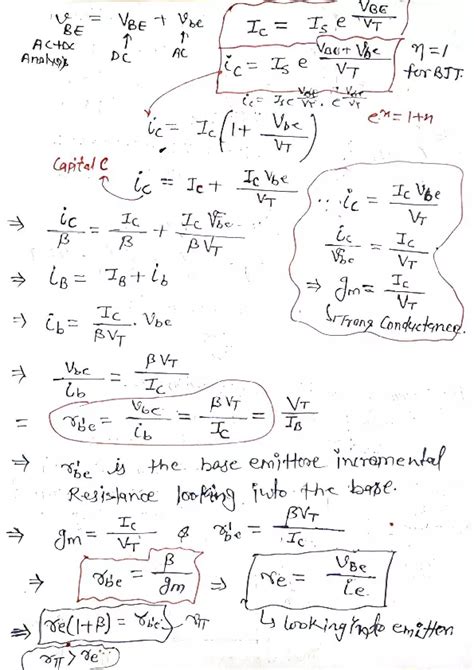 v_BE = V_BE + v_be
AC+DC Analysis
DC
AC
I_C = I_S e^(V_BE/V_T)
i_C = I_S e^((V_BE + V_be)/V_T)
η = 1 for BJT.
i_C = I_S e^(V_BE/V_T) . e^(V_be/V_T)
e^x = 1+x
i_C = I_C (1 + V_be/V_T)
Capital C
i_C = I_C + I_C V_be/V_T
∴ i_c = I_C V_be/V_T
i_c/V_be = I_C/V_T
⇒ g_m = I_C/V_T
Conductance.
⇒ i_C/β = I_C/β + I_C V_be/(β V_T)
⇒ i_B = I_B + i_b
⇒ i_b = I_C/(β V_T) . V_be
⇒ V_be/i_b = β V_T/I_C
= r_b'e = V_be/i_b = β V_T/I_C = V_T/I_B
⇒ r_b'e is the base emittore incremental
Resistance looking into the base.
⇒ g_m = I_C/V_T & r_b'e = β V_T/I_C
⇒ r_b'e = β/g_m ⇒ r_e = V_be/i_e
⇒ r_e(1+β) = r_b'e r_π
↳ looking into emitter
r_π > r_e